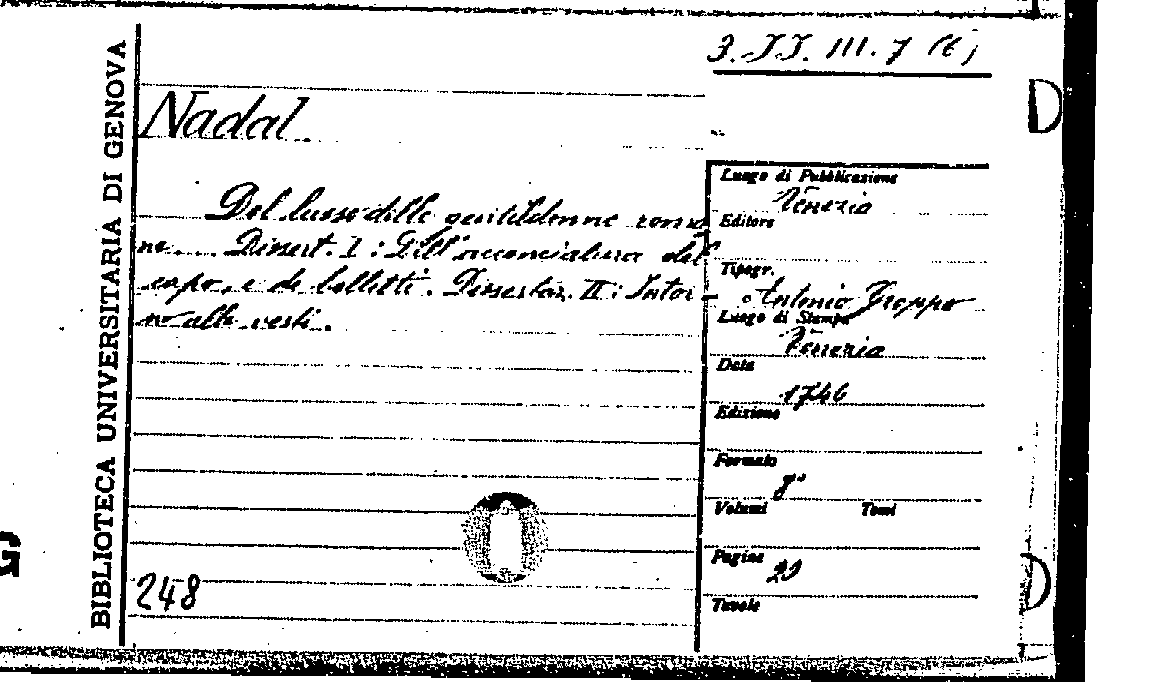 3. JJ. III. 7 (6)
BIBLIOTECA UNIVERSITARIA DI GENOVA
Nadal
Del lusso delle gentildonne roma
ne.... Dissert. I: Dell'acconciatura del
capo, e de belletti. Dissertaz. II: Intor-
no alle vesti.
248
Luogo di Pubblicazione
Venezia
Editore
Tipogr.
Antonio Groppo
Luogo di Stampa
Venezia
Data
1746
Edizione
Formato
8°
Volumi Tomi
Pagine
29
Tavole